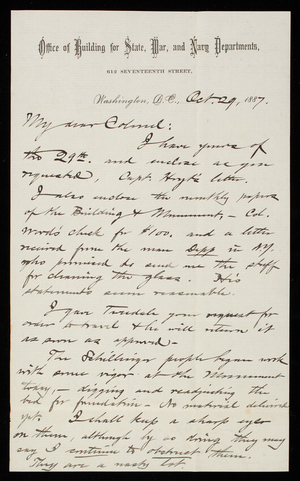 Office of Building for State, War, and Navy Departments,
612 SEVENTEENTH STREET,
Washington, D.C., Oct. 29, 1887.
My dear Colonel:
I have yours of
the 29th. and enclose as you
requested, Capt. Hoyt's letter.
I also enclose the monthly papers
of the Building & Monument, – Col.
Wood's check for $100, and a letter
received from the man Depp in N.Y.
who promised to send me the stuff
for cleaning the glass. His
statements seem reasonable.
I gave Tweedale your request for
order to travel & he will return it
as soon as approved. –
The Schillinger people began work
with some vigor at the Monument
today, – digging and readjusting the
bed for foundation – No material delivered
yet. I shall keep a sharp eye
on them, although by so doing they may
say I continue to obstruct them.
They are a nasty lot.